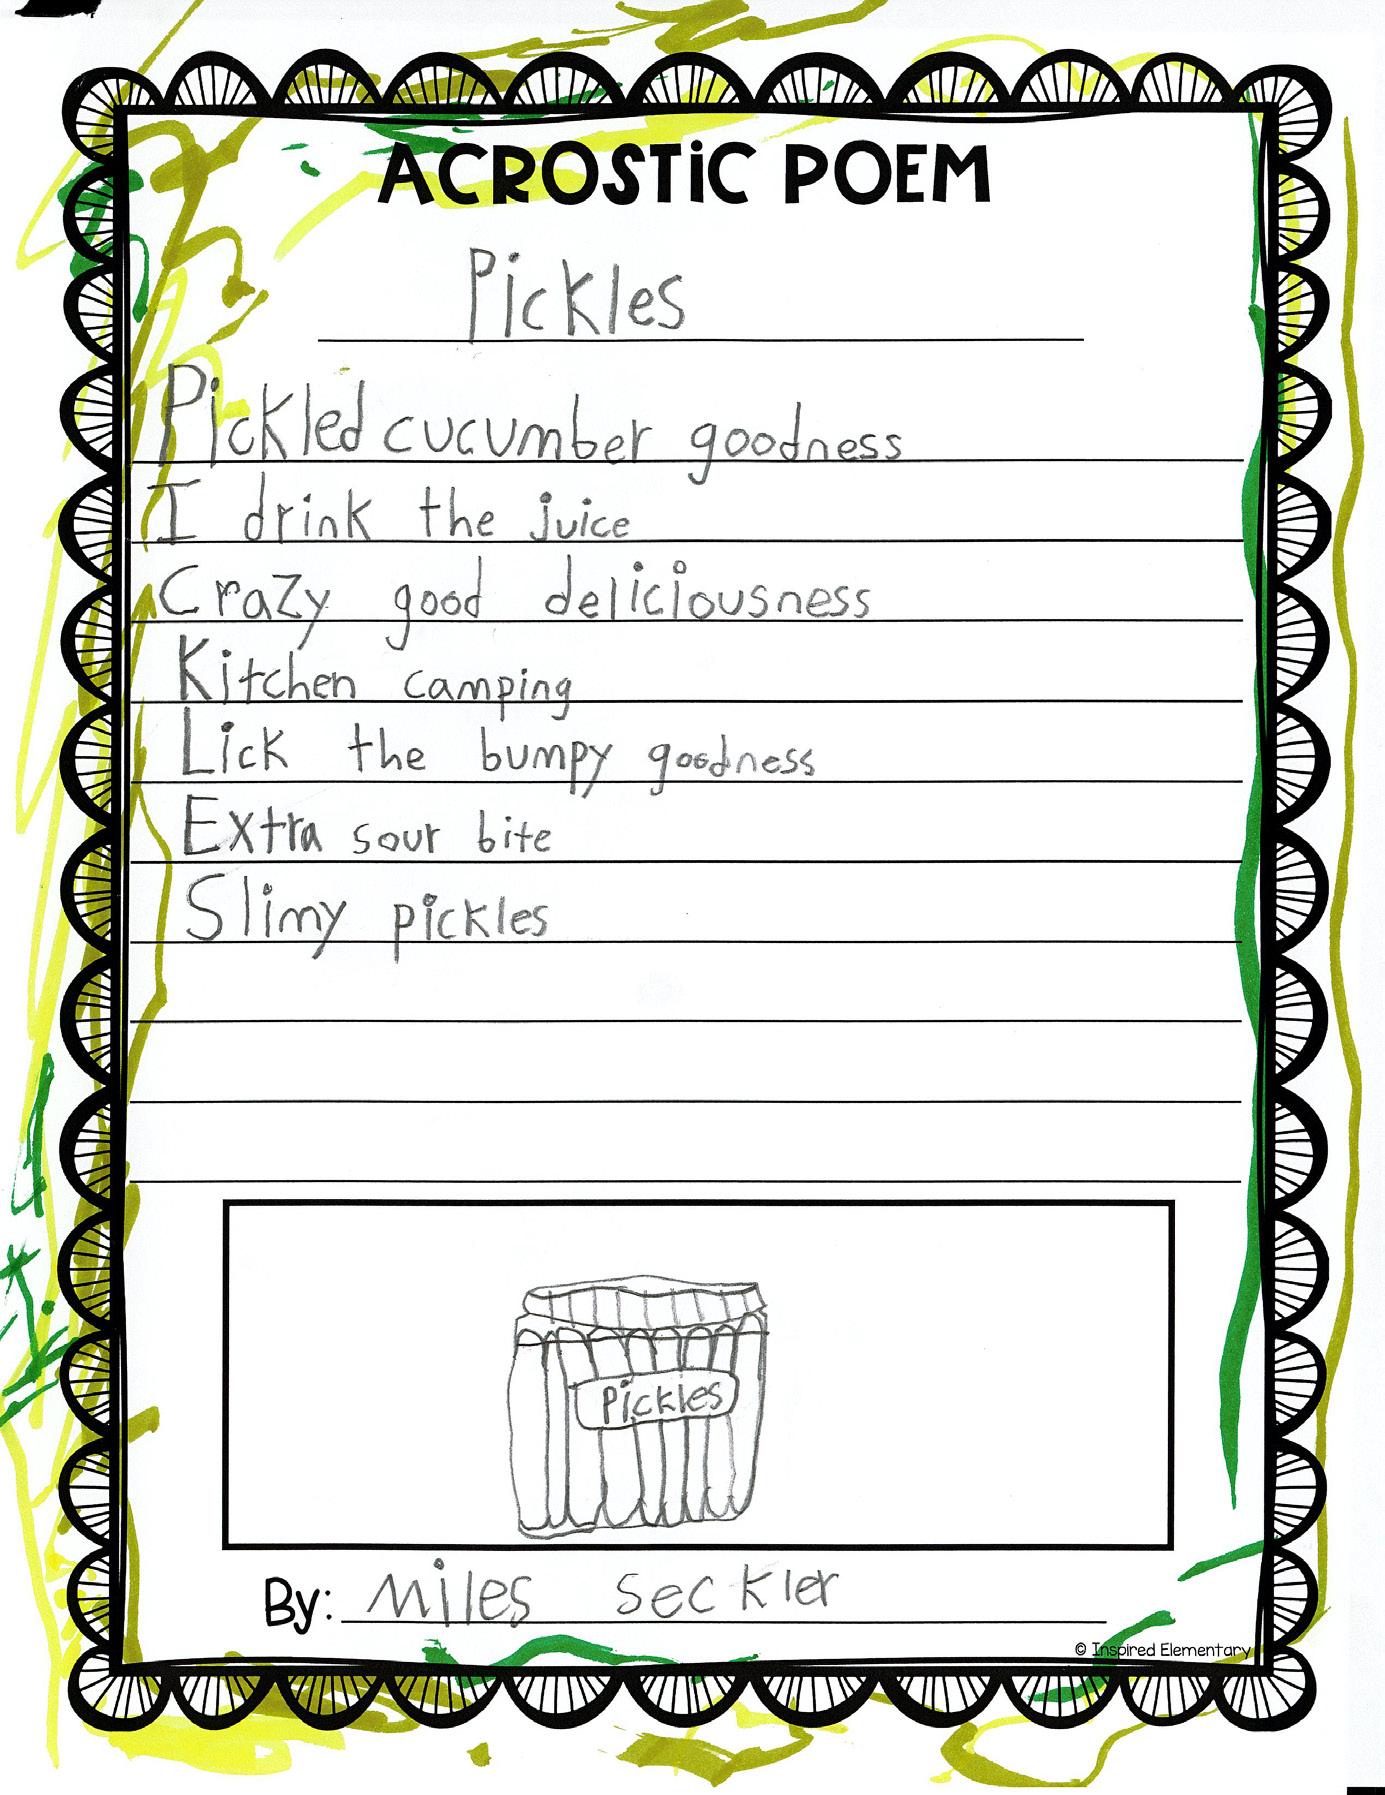 ACROSTIC POEM
Pickles
Pickled cucumber goodness
I drink the juice
Crazy good deliciousness
Kitchen camping
Lick the bumpy goodness
Extra sour bite
Slimy pickles
Pickles
By: Miles Seckler
© Inspired Elementary